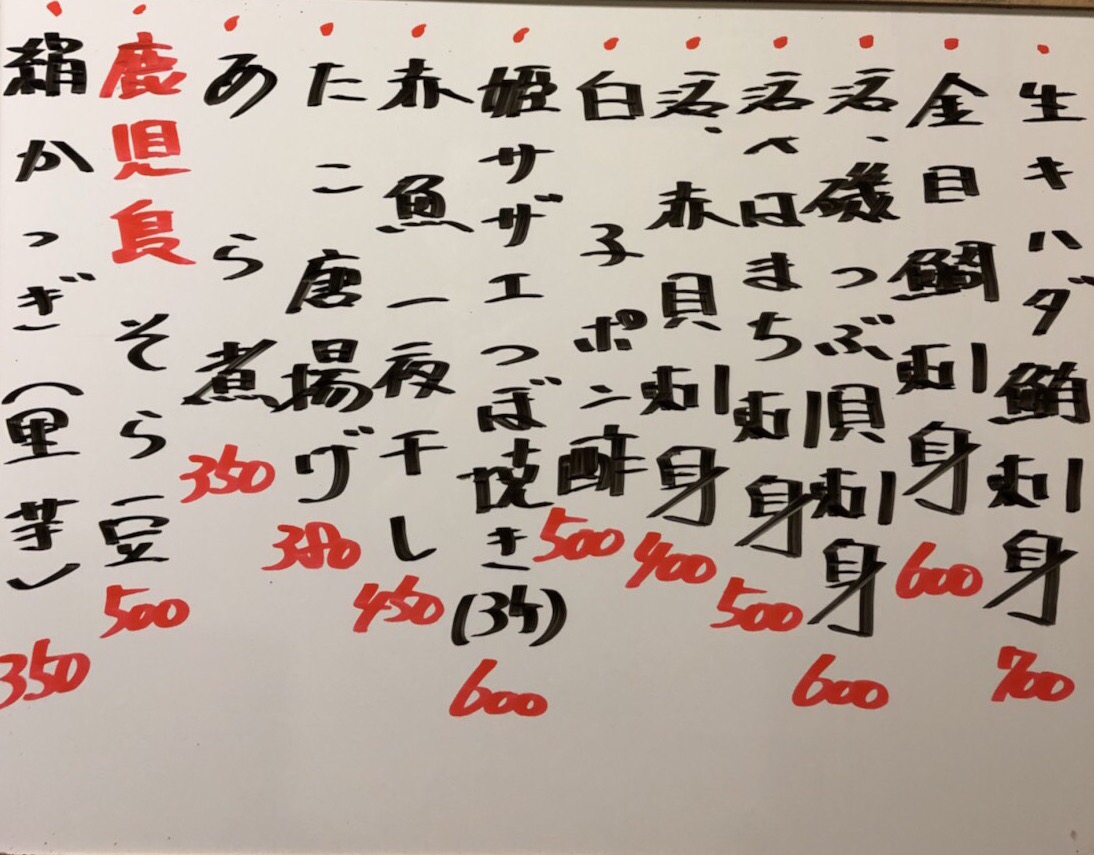 ・生キハダ鮪刺身 700
・金目鯛刺身 600
・活、磯つぶ貝刺身 600
・活〆はまち刺身 500
・活、赤貝刺身 400
・白子ポン酢 500
・姫サザエつぼ焼き(3ケ) 600
・赤魚一夜干し 450
・たこ唐揚げ 380
・あら煮 350
・鹿児島そら豆 500
・絹かつぎ(里芋) 350